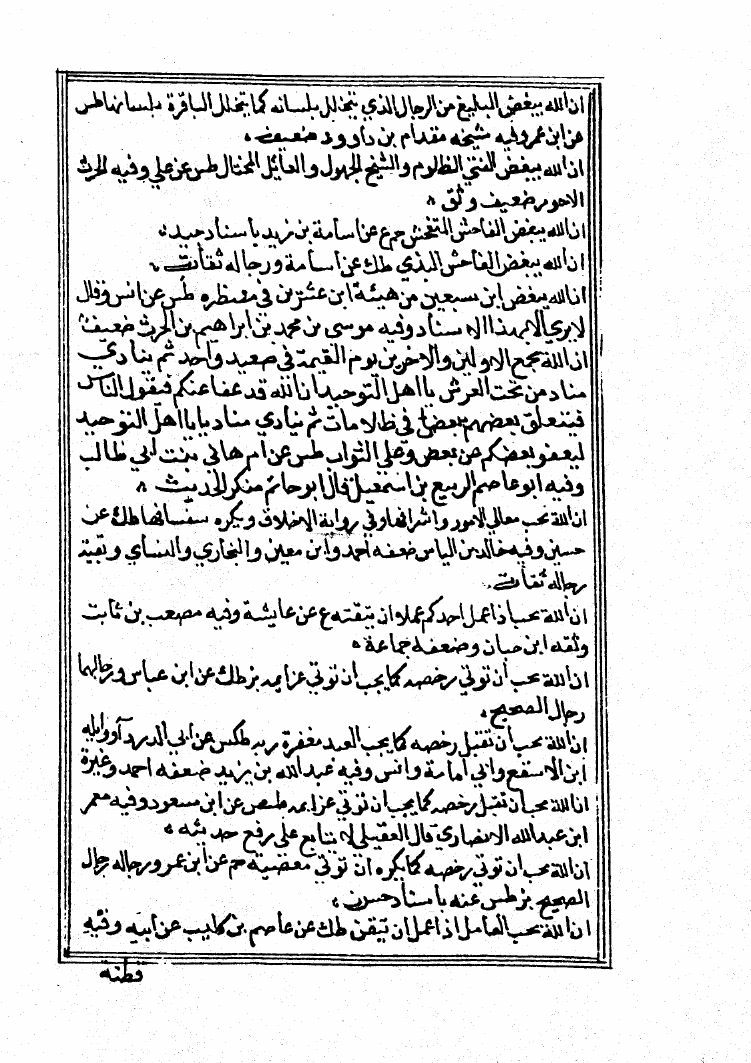 ان الله يبغض البليغ من الرجال الذي يتخلل بلسانه كما يتخلل الباقرة بلسانها طس
عن ابن عمر وفيه شيخه مقدام بن داوود ضعيف
ان الله يبغض الغني الظلوم والشيخ الجهول والعائل المختال طس عن علي وفيه الحرث
الاعور ضعيف وثق
ان الله يبغض الفاحش المتفحش حم ع عن اسامة بن زيد باسناد جيد
ان الله يبغض الفاحش البذي طك عن اسامة ورجاله ثقات
ان الله يبغض ابن سبعين من هيئة ابن عشرين في منظره طس عن انس وقال
لا يروي الا بهذا الاسناد وفيه موسى بن محمد بن ابراهيم بن الحرث ضعيف
ان الله يجمع الاولين والاخرين يوم القيمة في صعيد واحد ثم ينادي
مناد من تحت العرش يا اهل التوحيد ان الله قد عفا عنكم فيقول الناس
فيتعلق بعضهم بعضا في ظلامات ثم ينادي مناد يا يا اهل التوحيد
ليعفو بعضكم عن بعض وعلي الثواب طس عن ام هاني بنت ابي طالب
وفيه ابو عاصم الربيع بن اسمعيل قال ابو حاتم منكر الحديث
ان الله يحب معالي الامور واشرافها وفي رواية الاخلاق ويكره سفسافها طك عن
حسين وفيه خالد بن الياس ضعفه احمد وابن معين والبخاري والنساي وبقية
رجاله ثقات
ان الله يحب اذا عمل احدكم عملا ان يتقنه ع عن عايشة وفيه مصعب بن ثابت
وثقه ابن حبان وضعفه جماعة
ان الله يحب أن توتي رخصه كما يحب ان توتي عزايمه بز طك عن ابن عباس ورجالهما
رجال الصحيح
ان الله يحب أن تقبل رخصه كما يحب العبد مغفرة ربه طكس عن ابي الدرداء وواثلة
ابن الاسقع وابي امامة وانس وفيه عبد الله بن يزيد ضعفه احمد وغيره
ان الله يحب أن تقبل رخصه كما يحب ان توتي عزايمه طص عن ابن مسعود وفيه معمر
ابن عبد الله الانصاري قال العقيلي لا يتابع على رفع حديثه
ان الله يحب ان توتي رخصه كما يكره ان توتي معصيته حم عن ابن عمر ورجاله رجال
الصحيح بز طس عنه باسناد حسن
ان الله يحب العامل اذا عمل ان يتقن طك عن عاصم بن كليب عن ابيه وفيه
قطنة